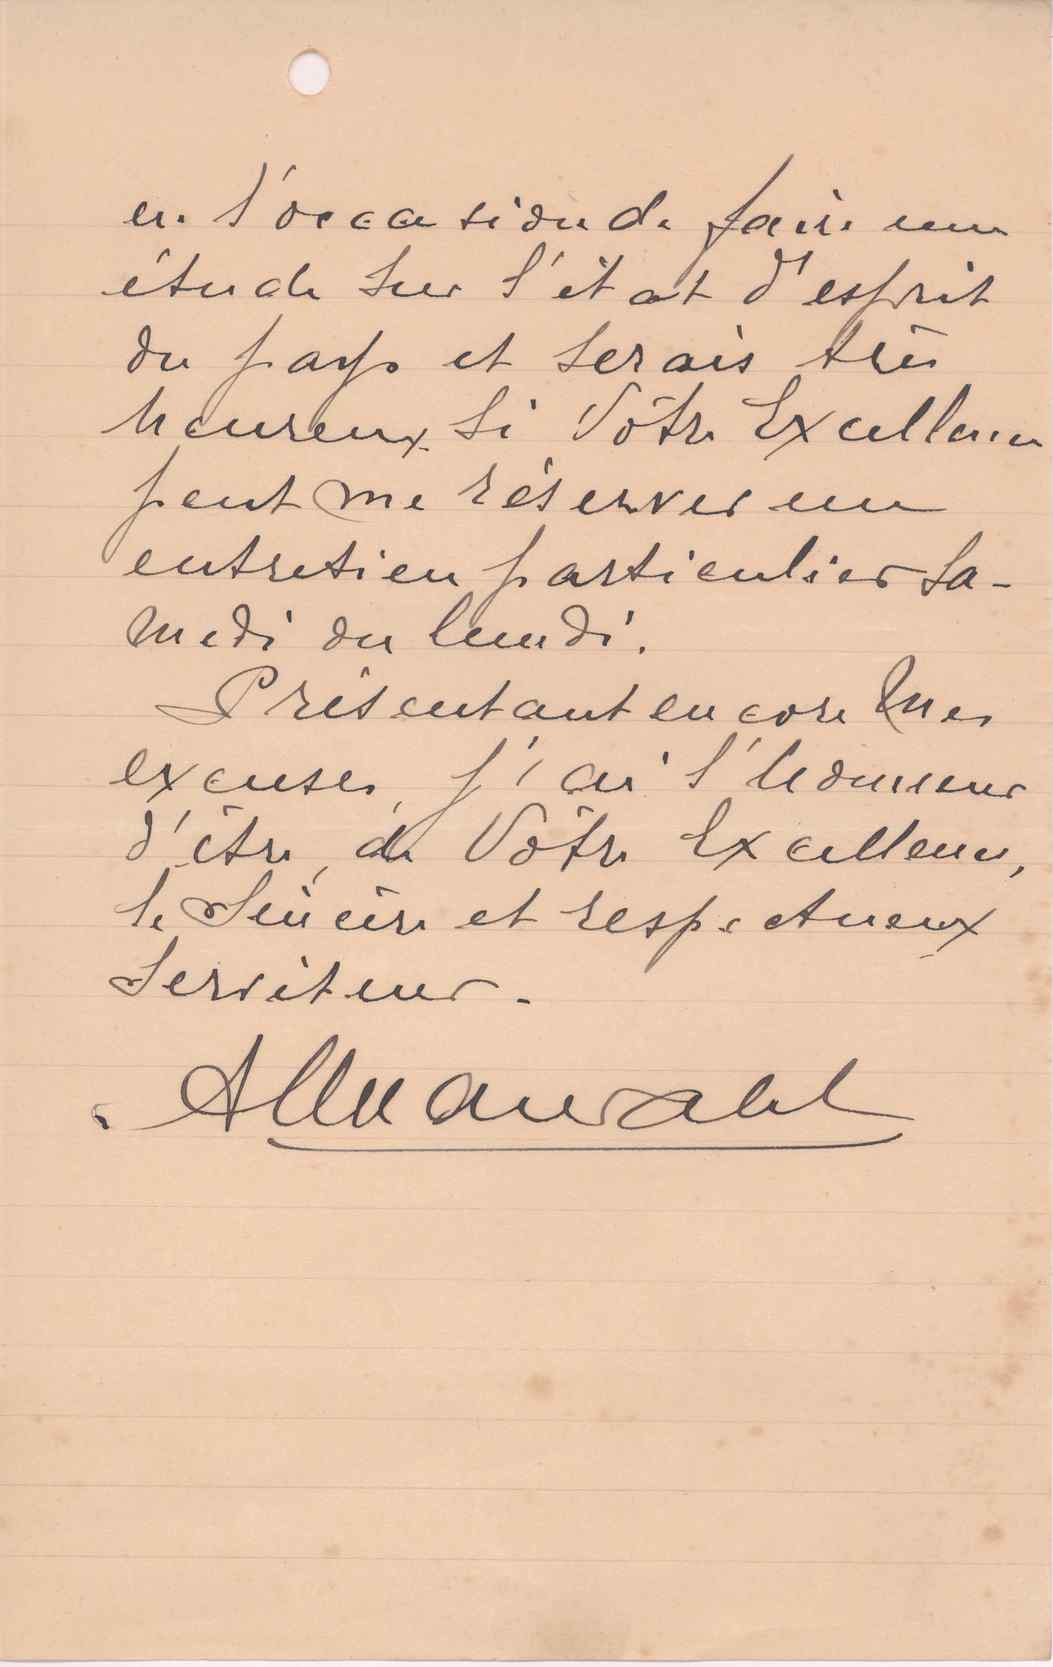 eu l'occasion de faire une
étude sur l'état d'esprit
du pays et serais très
heureux si Vôtre Excellence
peut me réserver un
entretien particulier sa-
medi ou lundi.
Présentant encore mes
excuses, j'ai l'honneur
d'être, de Vôtre Excellence,
le sincère et respectueux
serviteur.